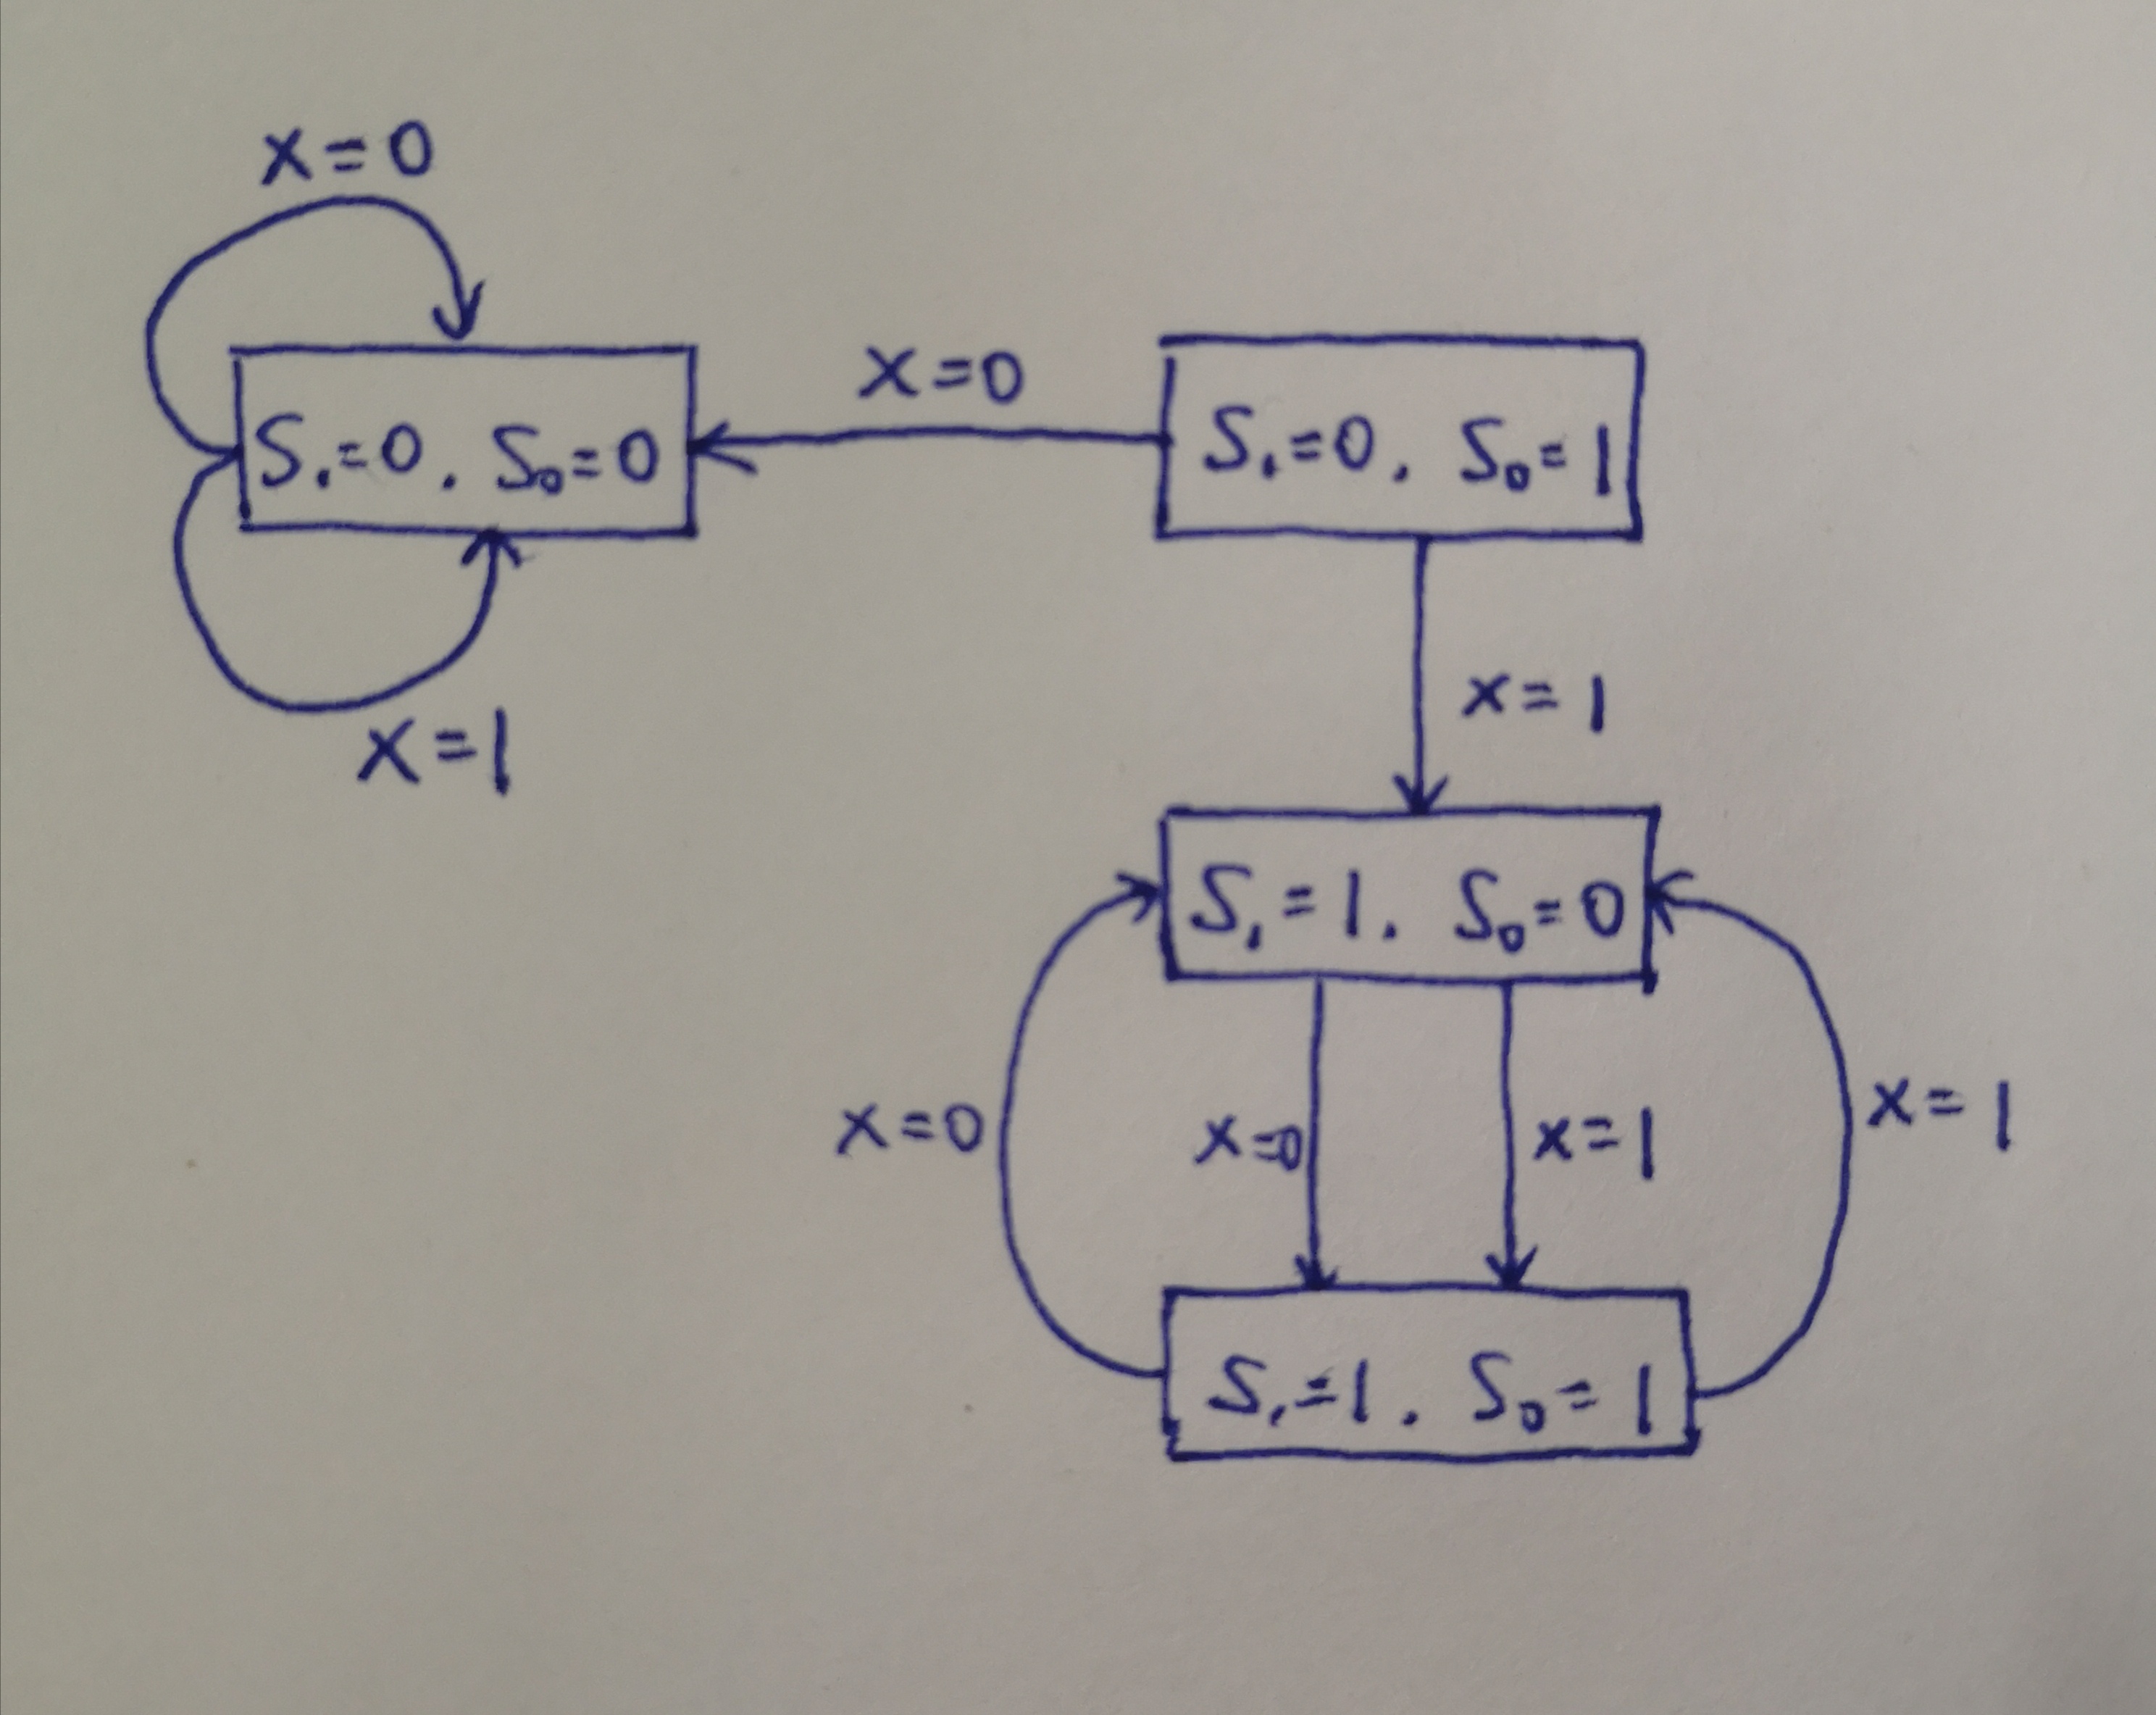 x=0
S₁=0. S₀=0
x=0
S₁=0. S₀=1
x=1
x=1
S₁=1. S₀=0
x=0
x=0
x=1
x=1
S₁=1. S₀=1